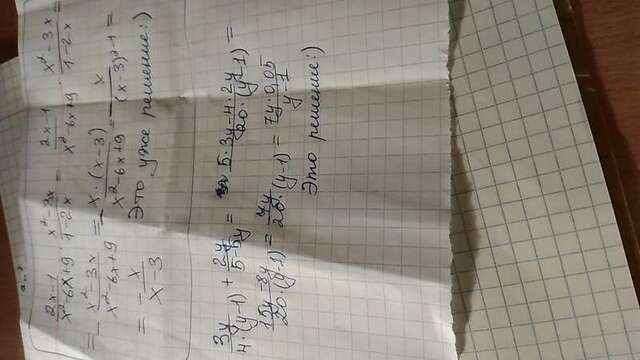 (2x-1)/(x²-6x+9) · (x²-3x)/(1-2x) = (2x-1)/(x²-6x+9) · (x²-3x)/(1-2x) =
= -(x²-3x)/(x²-6x+9) = -(x·(x-3))/(x²-6x+9) = -x/(x-3)²⁻¹ =
= -x/(x-3) Это уже решение:)
3y/(4·(y-1)) + 2y/(5-5y) = (5·3y-4·2y)/(20·(y-1)) =
(15y-8y)/(20·(y-1)) = 7y/(20·(y-1)) = (7y·0,05)/(y-1)
Это решение:)